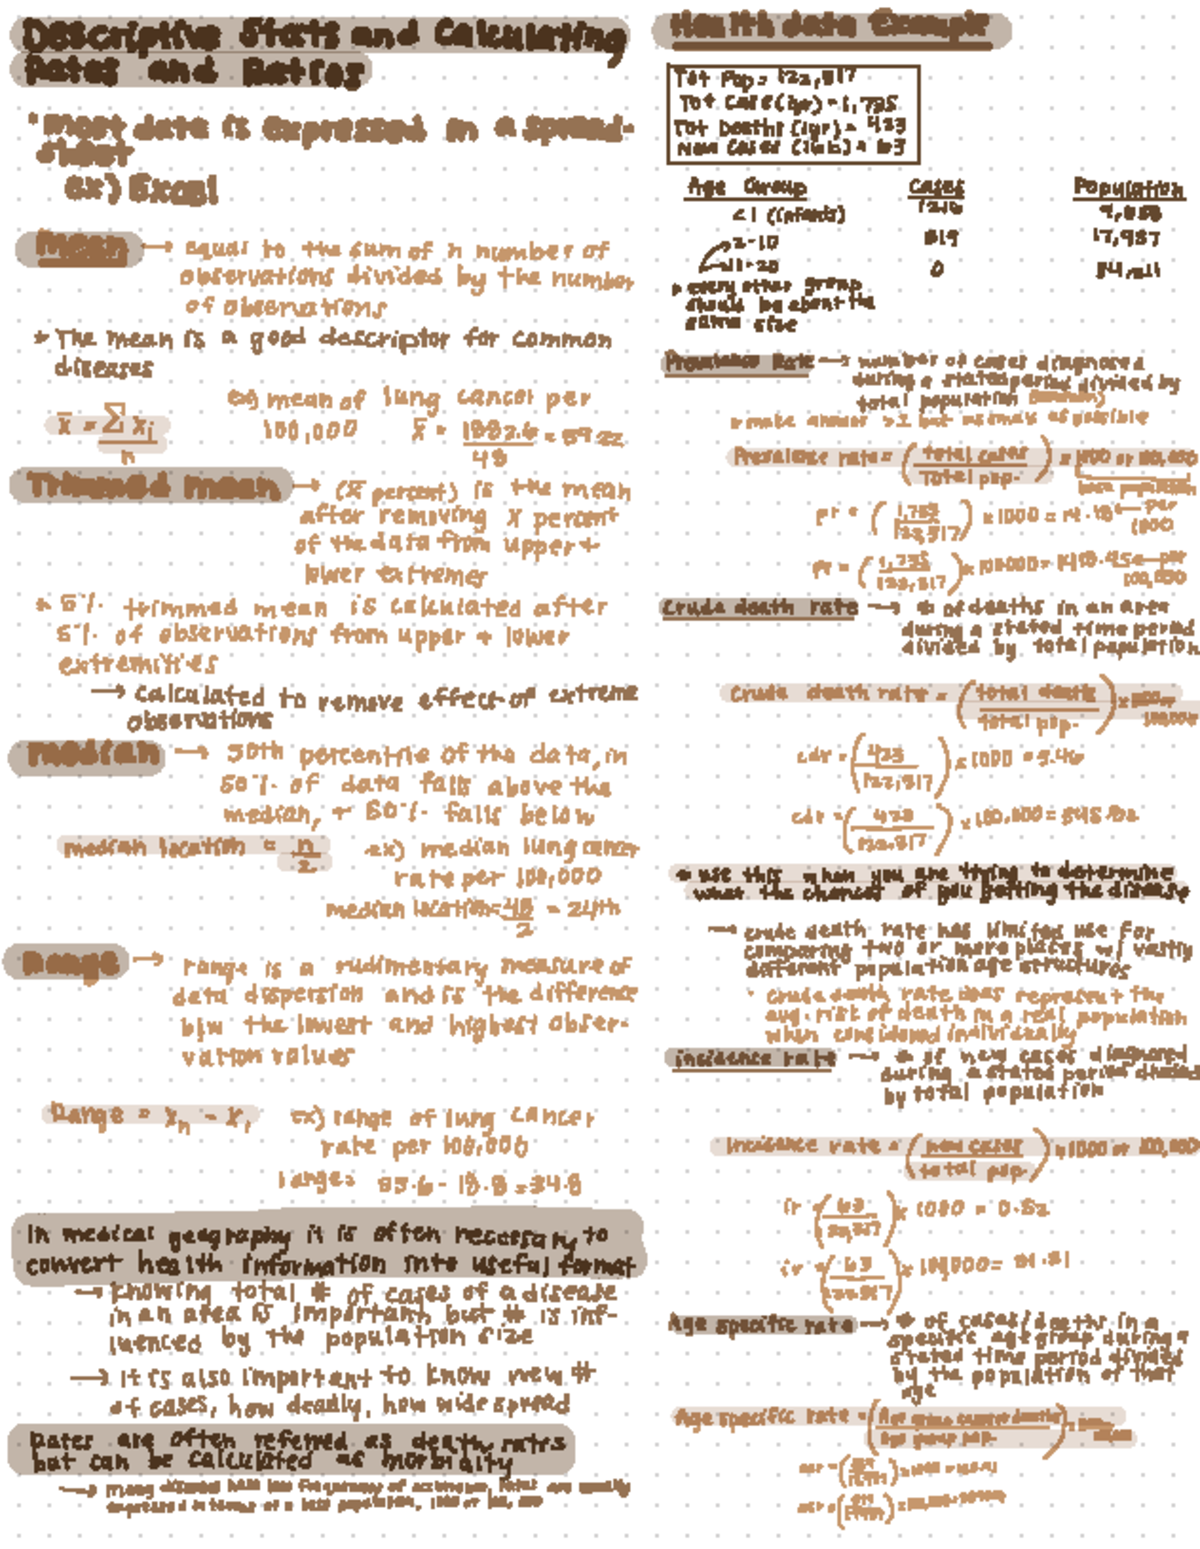 Descriptive Stats and Calculating
Rates and Ratios
* most data is expressed in a spread-
sheet
ex) Excel
Mean → equal to the sum of n number of
observations divided by the number
of observations
* The mean is a good descriptor for common
diseases
x̄ = Σ xi / n
ex) mean of lung cancer per
100,000 x̄ = / 48 =
Trimmed mean → (x̄ percent) is the mean
after removing X percent
of the data from upper +
lower extremes
* 5% trimmed mean is calculated after
5% of observations from upper + lower
extremities
→ calculated to remove effect of extreme
observations
Median → 50th percentile of the data, in
50% of data falls above the
median, + 50% falls below
median location = n/2
ex) median lung cancer
rate per 100,000
median location = 48/2 = 24th
Range → range is a rudimentary measure of
data dispersion and is the difference
b/w the lowest and highest obser-
vation values
Range = xn - x1
ex) range of lung cancer
rate per 100,000
range = - =
In medical geography it is often necessary to
convert health information into useful format
→ knowing total # of cases of a disease
in an area is important but # is inf-
luenced by the population size
→ it is also important to know new #
of cases, how deadly, how widespread
Rates are often referred as death rates
but can be calculated as morbidity
→ many diseases have low frequency of occurrence, rates are usually
expressed in terms of a base population,
Health data Example
Tot Pop = 122,517
Tot Case (1yr) = 1,735
Tot Deaths (1yr) = 423
New Cases = 63
Age Group Cases Population
<1 (infants)
2-10 819
11-20 0
* every other group
should be about the
same size
Prevalence Rate → number of cases diagnosed
during a stated period divided by
total population
* make answer >1 but as small as possible
Prevalence rate = (total cases / total pop.) × 1000 or 100,000
base population
pr = (1,735 / ) × 1000 = per
1000
pr = (1,735 / ) × 100,000 = per
100,000
Crude death rate → # of deaths in an area
during a stated time period
divided by total population
Crude death rate = (total death / total pop.) × 1000 or
100,000
cdr = (423 / ) × 1000 =
cdr = (423 / ) × 100,000 =
* use this when you are trying to determine
what the chances of you getting the disease
→ crude death rate has limited use for
comparing two or more places w/ vastly
different population age structures
* crude death rate does represent the
avg. risk of death in a real population
when considered individually
incidence rate → # of new cases diagnosed
during a stated period divided
by total population
Incidence rate = (new cases / total pop.) × 1000 or 100,000
ir = (63 / ) × 1000 =
ir = (63 / ) × 100,000 =
Age specific rate → # of cases/deaths in a
specific age group during a
stated time period divided
by the population of that
age
Age specific rate = (Age group / Age group pop.)
asr =
asr =